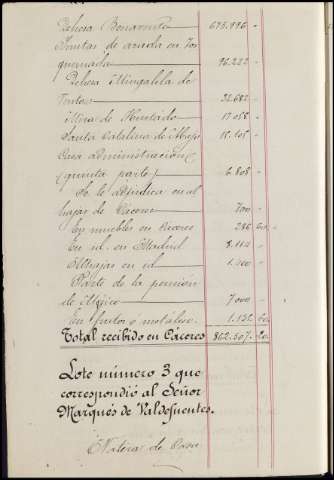 Dehesa Benavente 675.996 "
Juntas de arada en Tor
quemada 96.222 "
Dehesa Mingalela de
Frutos 32.682 "
Mira de Hurtado 17.058 "
Santa Catalina de 18.105 "
Casa administración
(quinta parte) 6.808 "
Se le adjudica en al
hajas de Cáceres 700 "
En muebles en Cáceres 286 60
En id. en Madrid 3.114 "
Alhajas en id 1.400 "
Parte de la pensión
de Méjico 7000 "
En frutos o metálico 1.132 60
Total recibido en Cáceres 862.507 20
Lote número 3 que
correspondió al Señor
Marqués de Valdefuentes.
de